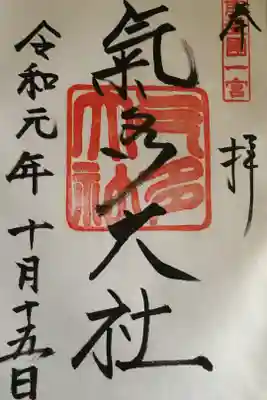 奉拝
能登國一宮
氣多大社
氣多大社
令和元年十月十五日